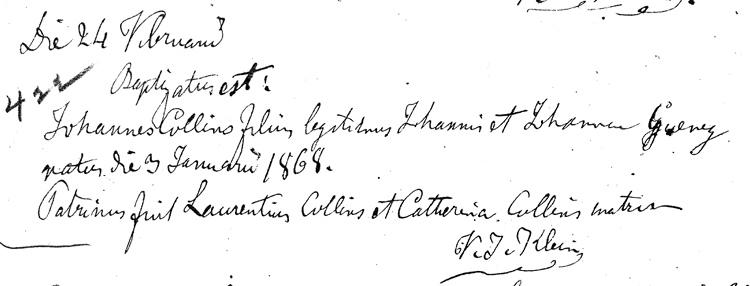 Die 24 Februarii
422 Baptizatus est:
Johannes Collins filius legitimus Johannis et Johannae
natus die 3 Januarii 1868.
Patrinus fuit Laurentius Collins et Catherina Collins matrina
V. J. Klein